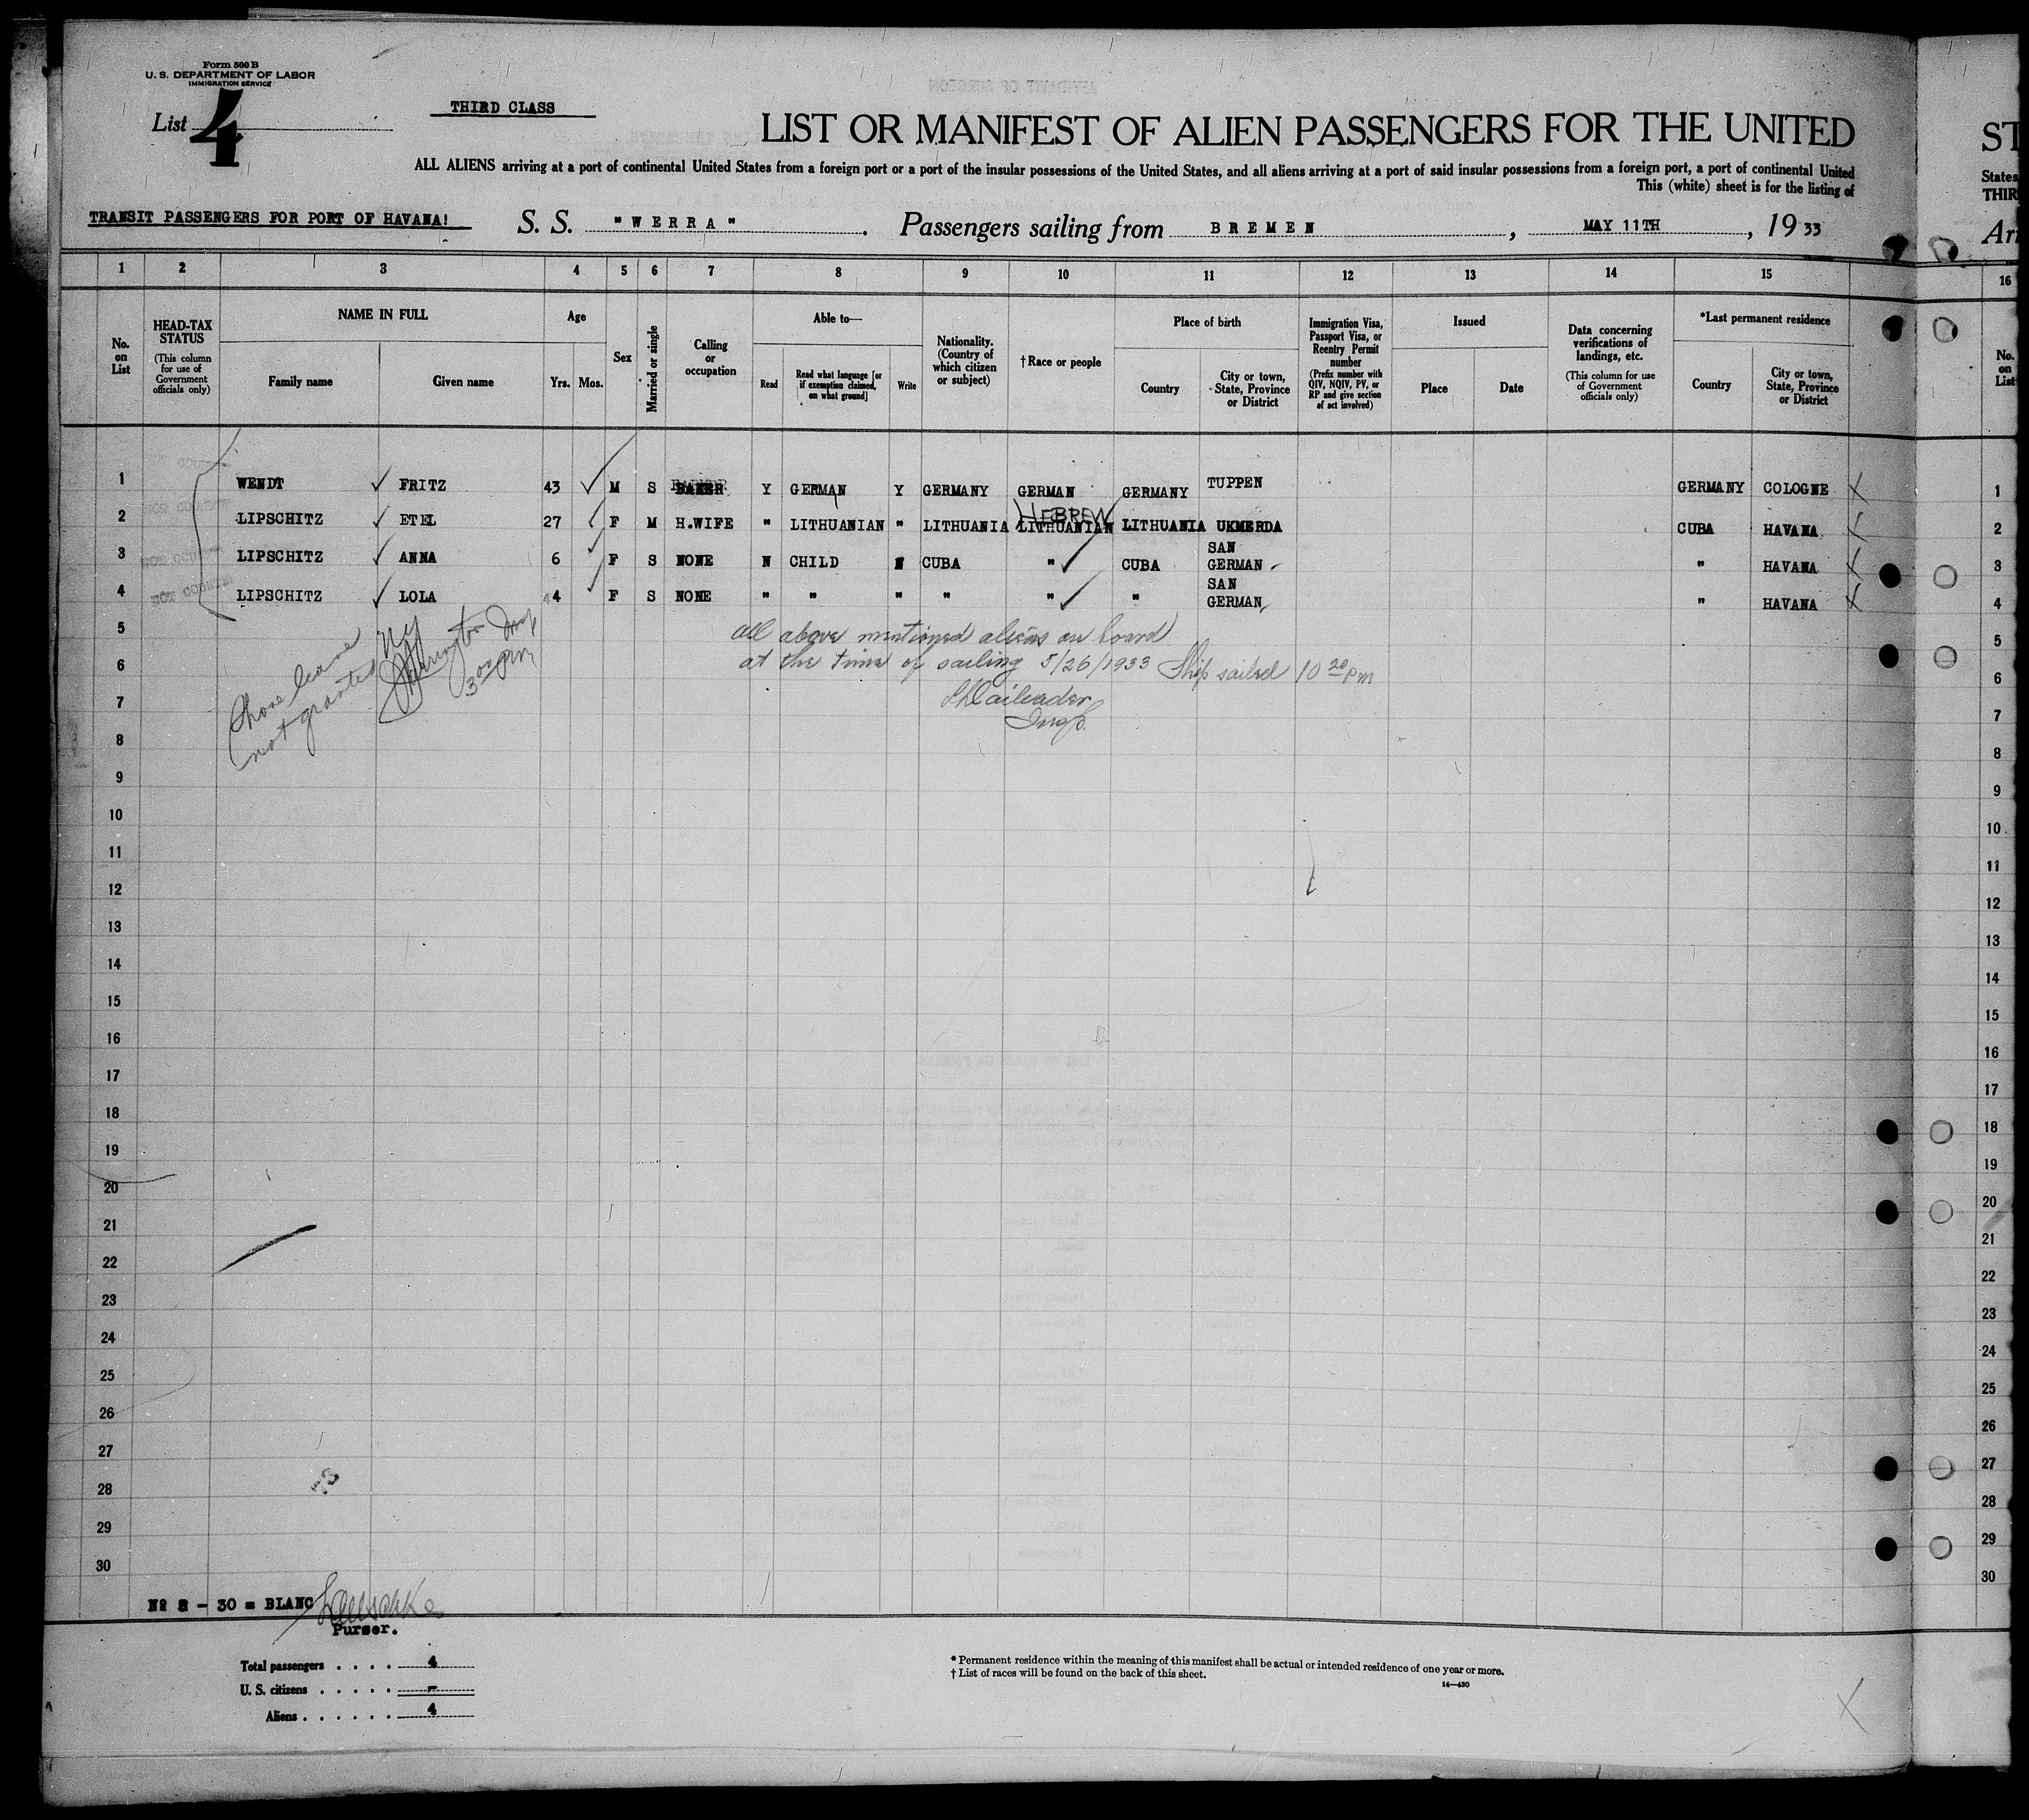 Form 500 B
U. S. DEPARTMENT OF LABOR
IMMIGRATION SERVICE
List 4
THIRD CLASS
LIST OR MANIFEST OF ALIEN PASSENGERS FOR THE UNITED
ALL ALIENS arriving at a port of continental United States from a foreign port or a port of the insular possessions of the United States, and all aliens arriving at a port of said insular possessions from a foreign port, a port of continental United
This (white) sheet is for the listing of
TRANSIT PASSENGERS FOR PORT OF HAVANA! S. S. "WERRA". Passengers sailing from BREMEN, MAY 11TH, 1933
ST
States
THIR
Arr
1 2 3 4 5 6 7 8 9 10 11 12 13 14 15 16
No. on List
HEAD-TAX STATUS (This column for use of Government officials only)
NAME IN FULL
Family name Given name
Age
Yrs. Mos.
Sex
Married or single
Calling or occupation
Able to—
Read Read what language [or if exemption claimed, on what ground] Write
Nationality. (Country of which citizen or subject)
†Race or people
Place of birth
Country City or town, State, Province or District
Immigration Visa, Passport Visa, or Reentry Permit number (Prefix number with QIV, NQIV, PV, or RP and give section of act involved)
Issued
Place Date
Data concerning verifications of landings, etc. (This column for use of Government officials only)
*Last permanent residence
Country City or town, State, Province or District
No. on List
1 WENDT FRITZ 43 M S BAKER Y GERMAN Y GERMANY GERMAN GERMANY TUPPEN GERMANY COLOGNE 1
HEBREW
2 LIPSCHITZ ETEL 27 F M H.WIFE " LITHUANIAN " LITHUANIA LITHUANIAN LITHUANIA UKMERDA CUBA HAVANA 2
3 LIPSCHITZ ANNA 6 F S NONE N CHILD N CUBA " CUBA SAN GERMAN " HAVANA 3
4 LIPSCHITZ LOLA 4 F S NONE " " " " " " SAN GERMAN " HAVANA 4
NOT
Shore leave
not granted
NY
3 00 PM
5 all above mentioned aliens on board 5
6 at the time of sailing 5/26/1933 Ship sailed 10 20 pm 6
7 7
Insp.
8 8
9 9
10 10
11 11
12 12
13 13
14 14
15 15
16 16
17 17
18 18
19 19
20 20
21 21
22 22
23 23
24 24
25 25
26 26
27 27
28 28
29 29
30 30
No - 30 = BLANC
Purser.
Total passengers . . . . 4
U. S. citizens . . . . . -
Aliens . . . . . . 4
* Permanent residence within the meaning of this manifest shall be actual or intended residence of one year or more.
† List of races will be found on the back of this sheet.
14—430